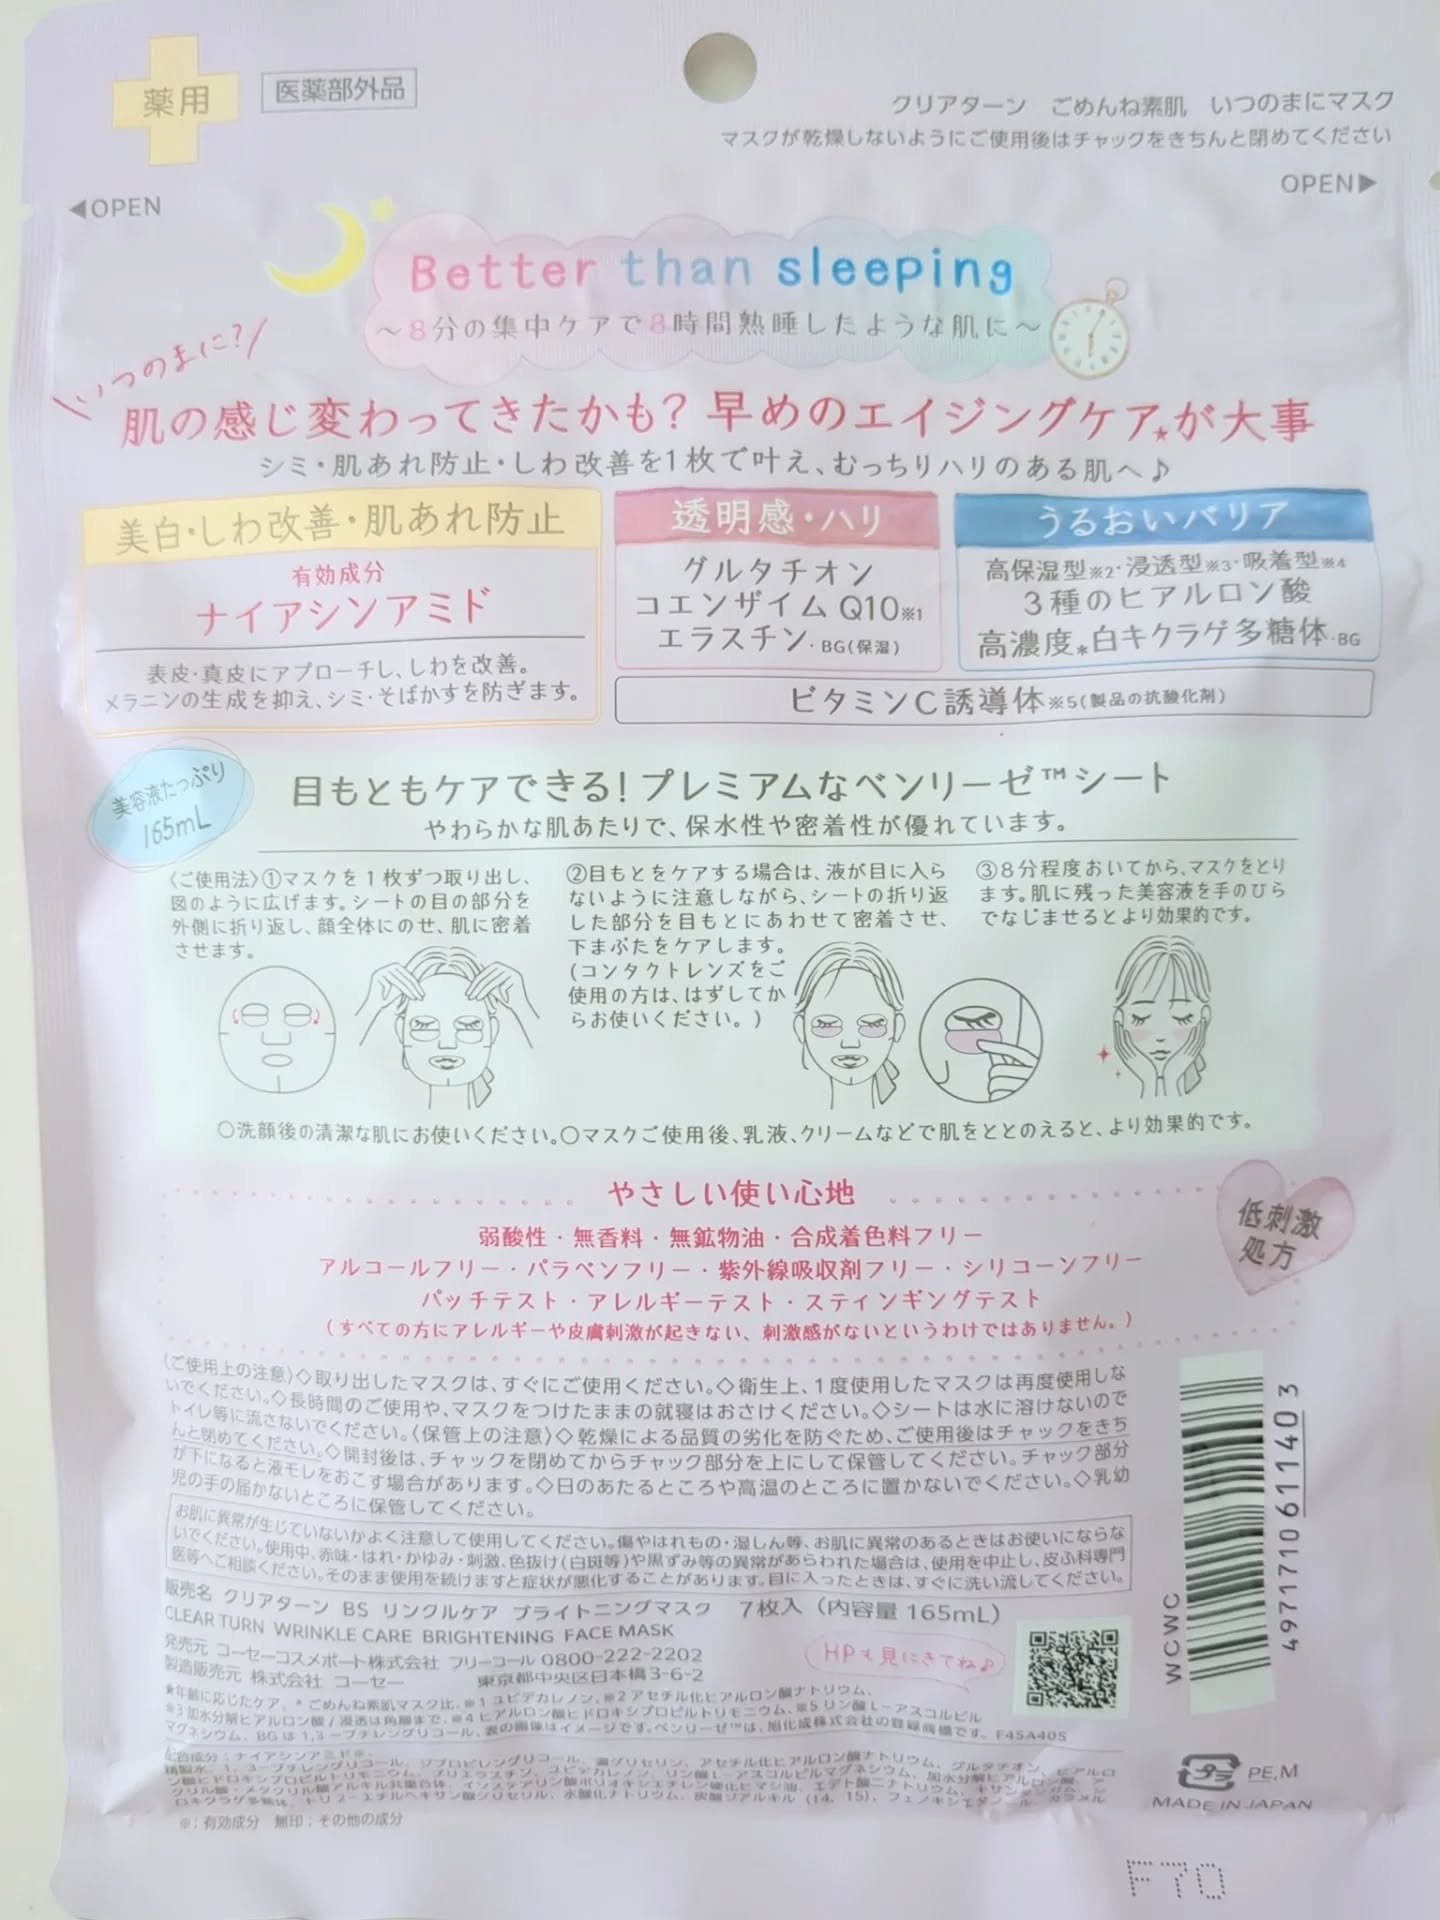 薬用
医薬部外品
クリアターン　ごめんね素肌　いつのまにマスク
マスクが乾燥しないようにご使用後はチャックをきちんと閉めてください
◀OPEN
OPEN▶
Better than sleeping
〜8分の集中ケアで8時間熟睡したような肌に〜
いつのまに?
肌の感じ変わってきたかも? 早めのエイジングケア★が大事
シミ・肌あれ防止・しわ改善を1枚で叶え、むっちりハリのある肌へ♪
美白・しわ改善・肌あれ防止
有効成分
ナイアシンアミド
表皮・真皮にアプローチし、しわを改善。
メラニンの生成を抑え、シミ・そばかすを防ぎます。
透明感・ハリ
グルタチオン
コエンザイム Q10※1
エラスチン・BG(保湿)
うるおいバリア
高保湿型※2・浸透型※3・吸着型※4
3種のヒアルロン酸
高濃度*白キクラゲ多糖体・BG
ビタミンC誘導体※5(製品の抗酸化剤)
美容液たっぷり
165mL
目もともケアできる! プレミアムなベンリーゼ™シート
やわらかな肌あたりで、保水性や密着性が優れています。
〈ご使用法〉①マスクを1枚ずつ取り出し、
図のように広げます。シートの目の部分を
外側に折り返し、顔全体にのせ、肌に密着
させます。
②目もとをケアする場合は、液が目に入ら
ないように注意しながら、シートの折り返
した部分を目もとにあわせて密着させ、
下まぶたをケアします。
(コンタクトレンズをご
使用の方は、はずしてか
らお使いください。)
③8分程度おいてから、マスクをとり
ます。肌に残った美容液を手のひら
でなじませるとより効果的です。
○洗顔後の清潔な肌にお使いください。○マスクご使用後、乳液、クリームなどで肌をととのえると、より効果的です。
やさしい使い心地
低刺激
処方
弱酸性・無香料・無鉱物油・合成着色料フリー
アルコールフリー・パラベンフリー・紫外線吸収剤フリー・シリコーンフリー
パッチテスト・アレルギーテスト・スティンギングテスト
(すべての方にアレルギーや皮膚刺激が起きない、刺激感がないというわけではありません。)
〈ご使用上の注意〉◇取り出したマスクは、すぐにご使用ください。◇衛生上、1度使用したマスクは再度使用しな
いでください。◇長時間のご使用や、マスクをつけたままの就寝はおさけください。◇シートは水に溶けないので
トイレ等に流さないでください。〈保管上の注意〉◇乾燥による品質の劣化を防ぐため、ご使用後はチャックをきち
んと閉めてください。◇開封後は、チャックを閉めてからチャック部分を上にして保管してください。チャック部分
が下になると液モレをおこす場合があります。◇日のあたるところや高温のところに置かないでください。◇乳幼
児の手の届かないところに保管してください。
お肌に異常が生じていないかよく注意して使用してください。傷やはれもの・湿しん等、お肌に異常のあるときはお使いにならな
いでください。使用中、赤味・はれ・かゆみ・刺激、色抜け(白斑等)や黒ずみ等の異常があらわれた場合は、使用を中止し、皮ふ科専門
医等へご相談ください。そのまま使用を続けますと症状が悪化することがあります。目に入ったときは、すぐに洗い流してください。
販売名 クリアターン BS リンクルケア ブライトニングマスク　7枚入（内容量 165mL）
CLEAR TURN WRINKLE CARE BRIGHTENING FACE MASK
発売元 コーセーコスメポート株式会社 フリーコール 0800-222-2202
製造販売元 株式会社 コーセー　東京都中央区日本橋3-6-2
HPも見にきてね♪
★年齢に応じたケア。* ごめんね素肌マスク比。※1 ユビデカレノン、※2 アセチル化ヒアルロン酸ナトリウム、
※3 加水分解ヒアルロン酸 / 浸透は角層まで、※4 ヒアルロン酸ヒドロキシプロピルトリモニウム、※5 リン酸 L-アスコルビル
マグネシウム、BG は 1,3-ブチレングリコール、表の画像はイメージです。ベンリーゼ™は、旭化成株式会社の登録商標です。 F45A405
配合成分：ナイアシンアミド※、
精製水、1,3-ブチレングリコール、ジプロピレングリコール、濃グリセリン、アセチル化ヒアルロン酸ナトリウム、グルタチオン、ヒアルロ
ン酸ヒドロキシプロピルトリモニウム、エラスチン、ユビデカレノン、リン酸L-アスコルビルマグネシウム、加水分解ヒアルロン酸、ア
クリル酸・メタクリル酸アルキル共重合体、イソステアリン酸ポリオキシエチレン硬化ヒマシ油、エデト酸二ナトリウム、キサンタンガム、シ
ロキクラゲ多糖体、トリ2-エチルヘキサン酸グリセリル、水酸化ナトリウム、炭酸ジアルキル (14, 15)、フェノキシエタノール、カラメル
※：有効成分　無印：その他の成分
WCWC
4971710611403
プラ
PE,M
MADE IN JAPAN
F70